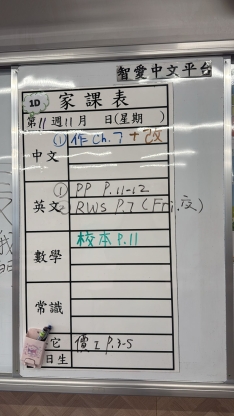 智愛中文平台
1D 家課表
第11週11月 日(星期 )
中文 ①作ch.7+改
英文 ①PP P.11-12
RWS P.7(Fri.交)
數學 校本P.11
常識
它 P.3-5
日生